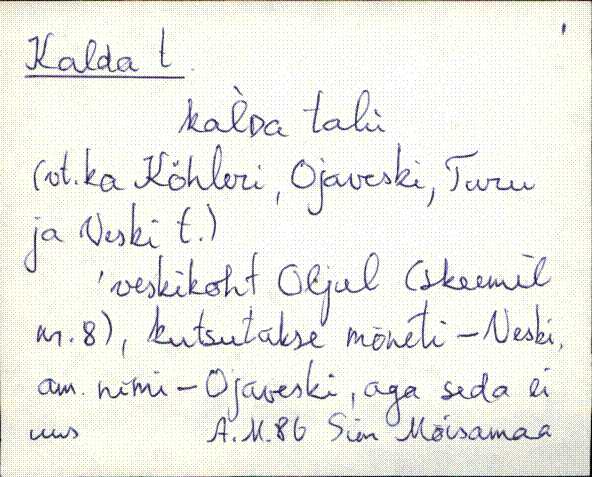 Kalda t.
kalda talu
(vt. ka Köhleri, Ojaveski, Turu
ja Veski t.)
'veskikoht Oljul (skeemil
nr. 8), kutsutakse mõneti – Veski,
am. nimi – Ojaveski, aga seda ei
A.M. 86 Siim Mõisamaa